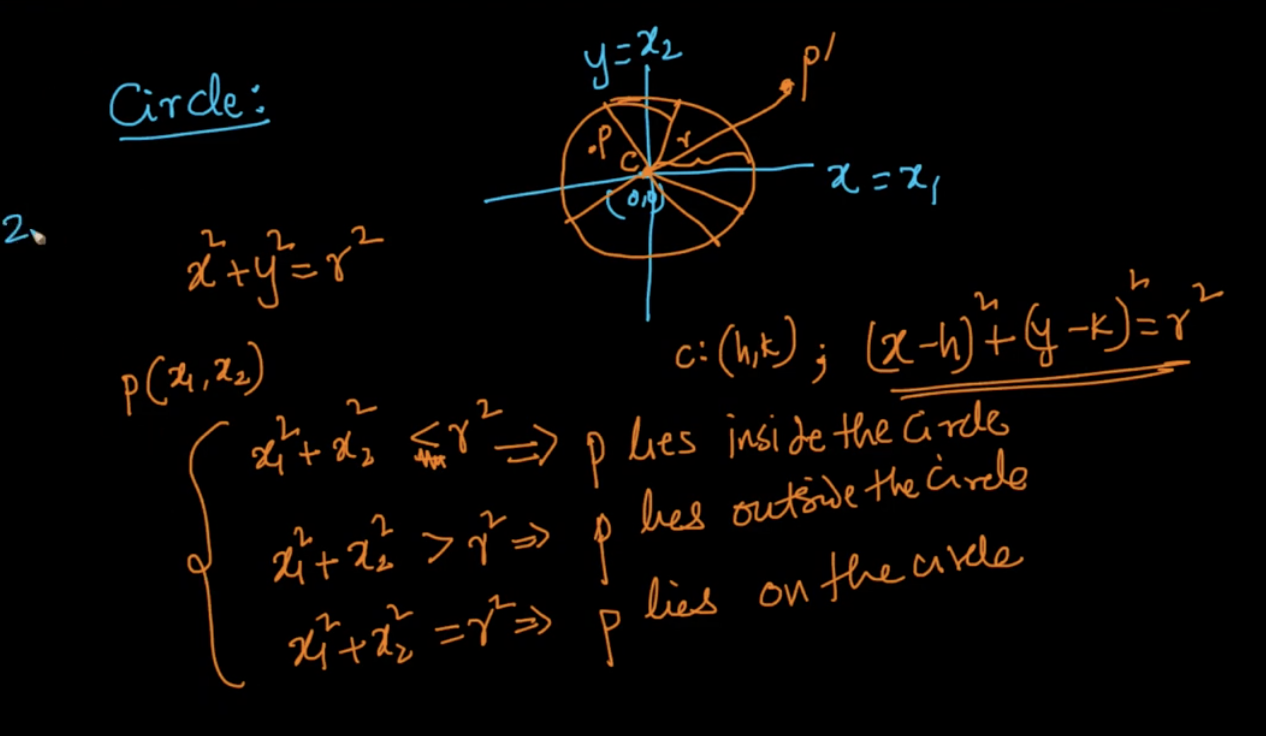 Circle:
y = x₂
p'
.p
C
r
(0,0)
x = x₁
2
x² + y² = r²
c: (h,k) ; (x-h)² + (y-k)² = r²
p(x₁, x₂)
x₁² + x₂² < r² ⇒ p lies inside the Circle
x₁² + x₂² > r² ⇒ p lies outside the Circle
x₁² + x₂² = r² ⇒ p lies on the circle